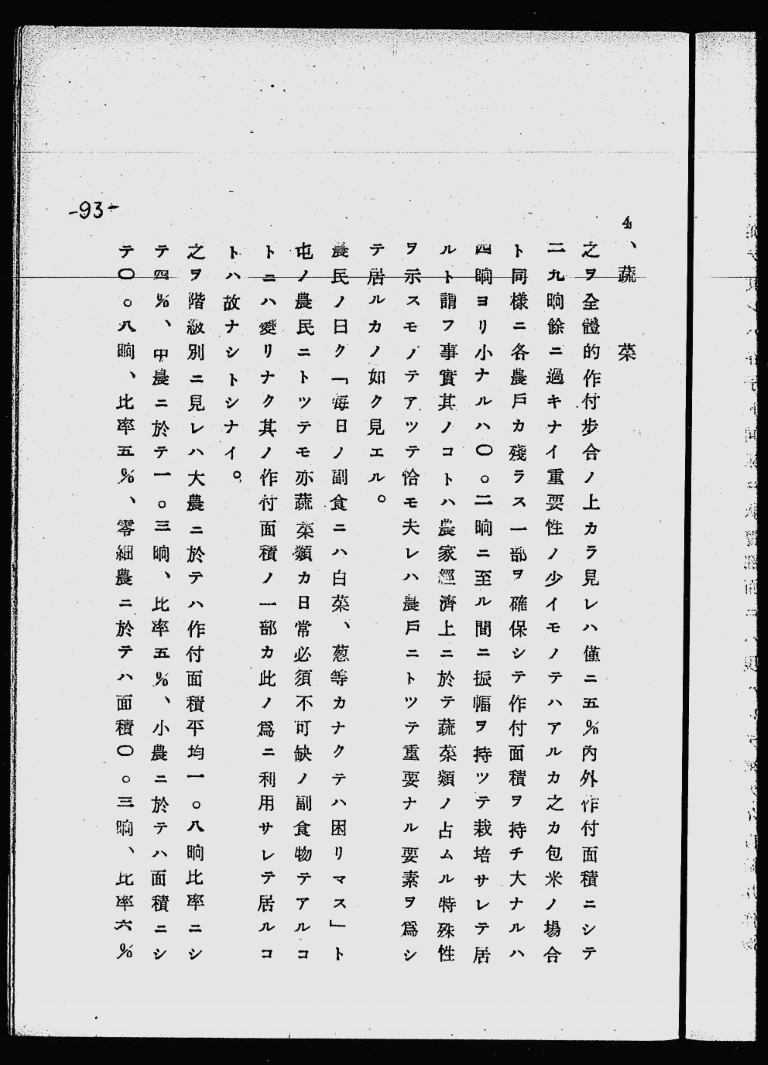 4、蔬　菜
之ヲ全體的作付步合ノ上カラ見レハ僅ニ五％內外作付面積ニシテ
二九晌餘ニ過キナイ重要性ノ少イモノテハアルカ之カ包米ノ場合
ト同樣ニ各農戶カ殘ラス一部ヲ確保シテ作付面積ヲ持チ大ナルハ
四晌ヨリ小ナルハ〇。二晌ニ至ル間ニ振幅ヲ持ツテ栽培サレテ居
ルト謂フ事實其ノコトハ農家經濟上ニ於テ蔬菜類ノ占ムル特殊性
ヲ示スモノテアツテ恰モ夫レハ農戶ニトツテ重要ナル要素ヲ爲シ
テ居ルカノ如ク見エル。
農民ノ曰ク「每日ノ副食ニハ白菜、葱等カナクテハ困リマス」ト
屯ノ農民ニトツテモ亦蔬菜類カ日常必須不可缺ノ副食物テアルコ
トニハ變リナク其ノ作付面積ノ一部カ此ノ爲ニ利用サレテ居ルコ
トハ故ナシトシナイ。
之ヲ階級別ニ見レハ大農ニ於テハ作付面積平均一。八晌比率ニシ
テ四％、中農ニ於テ一。三晌、比率五％、小農ニ於テハ面積ニシ
テ〇。八晌、比率五％、零細農ニ於テハ面積〇。三晌、比率六％
-93-